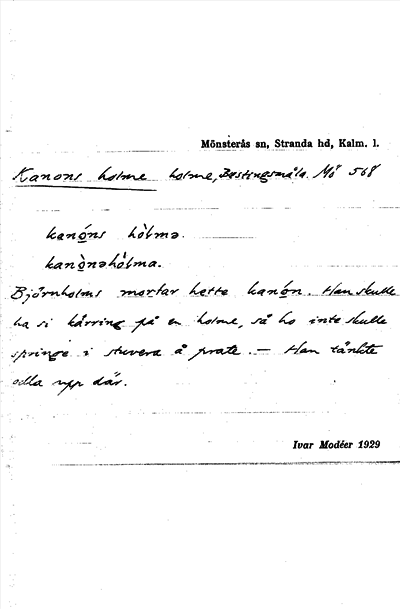 Mönsterås sn, Stranda hd, Kalm. l.
Kanons holme holme, Bastingsmåla. Mö 568
kanóns hòlmə.
kanònəhòlma.
Björnholms mortar hette kanón. Han skulle
ha si kärring på en holme, så ho inte skulle
springe i stuvera å prate. – Han tänkte
odla upp där.
Ivar Modéer 1929